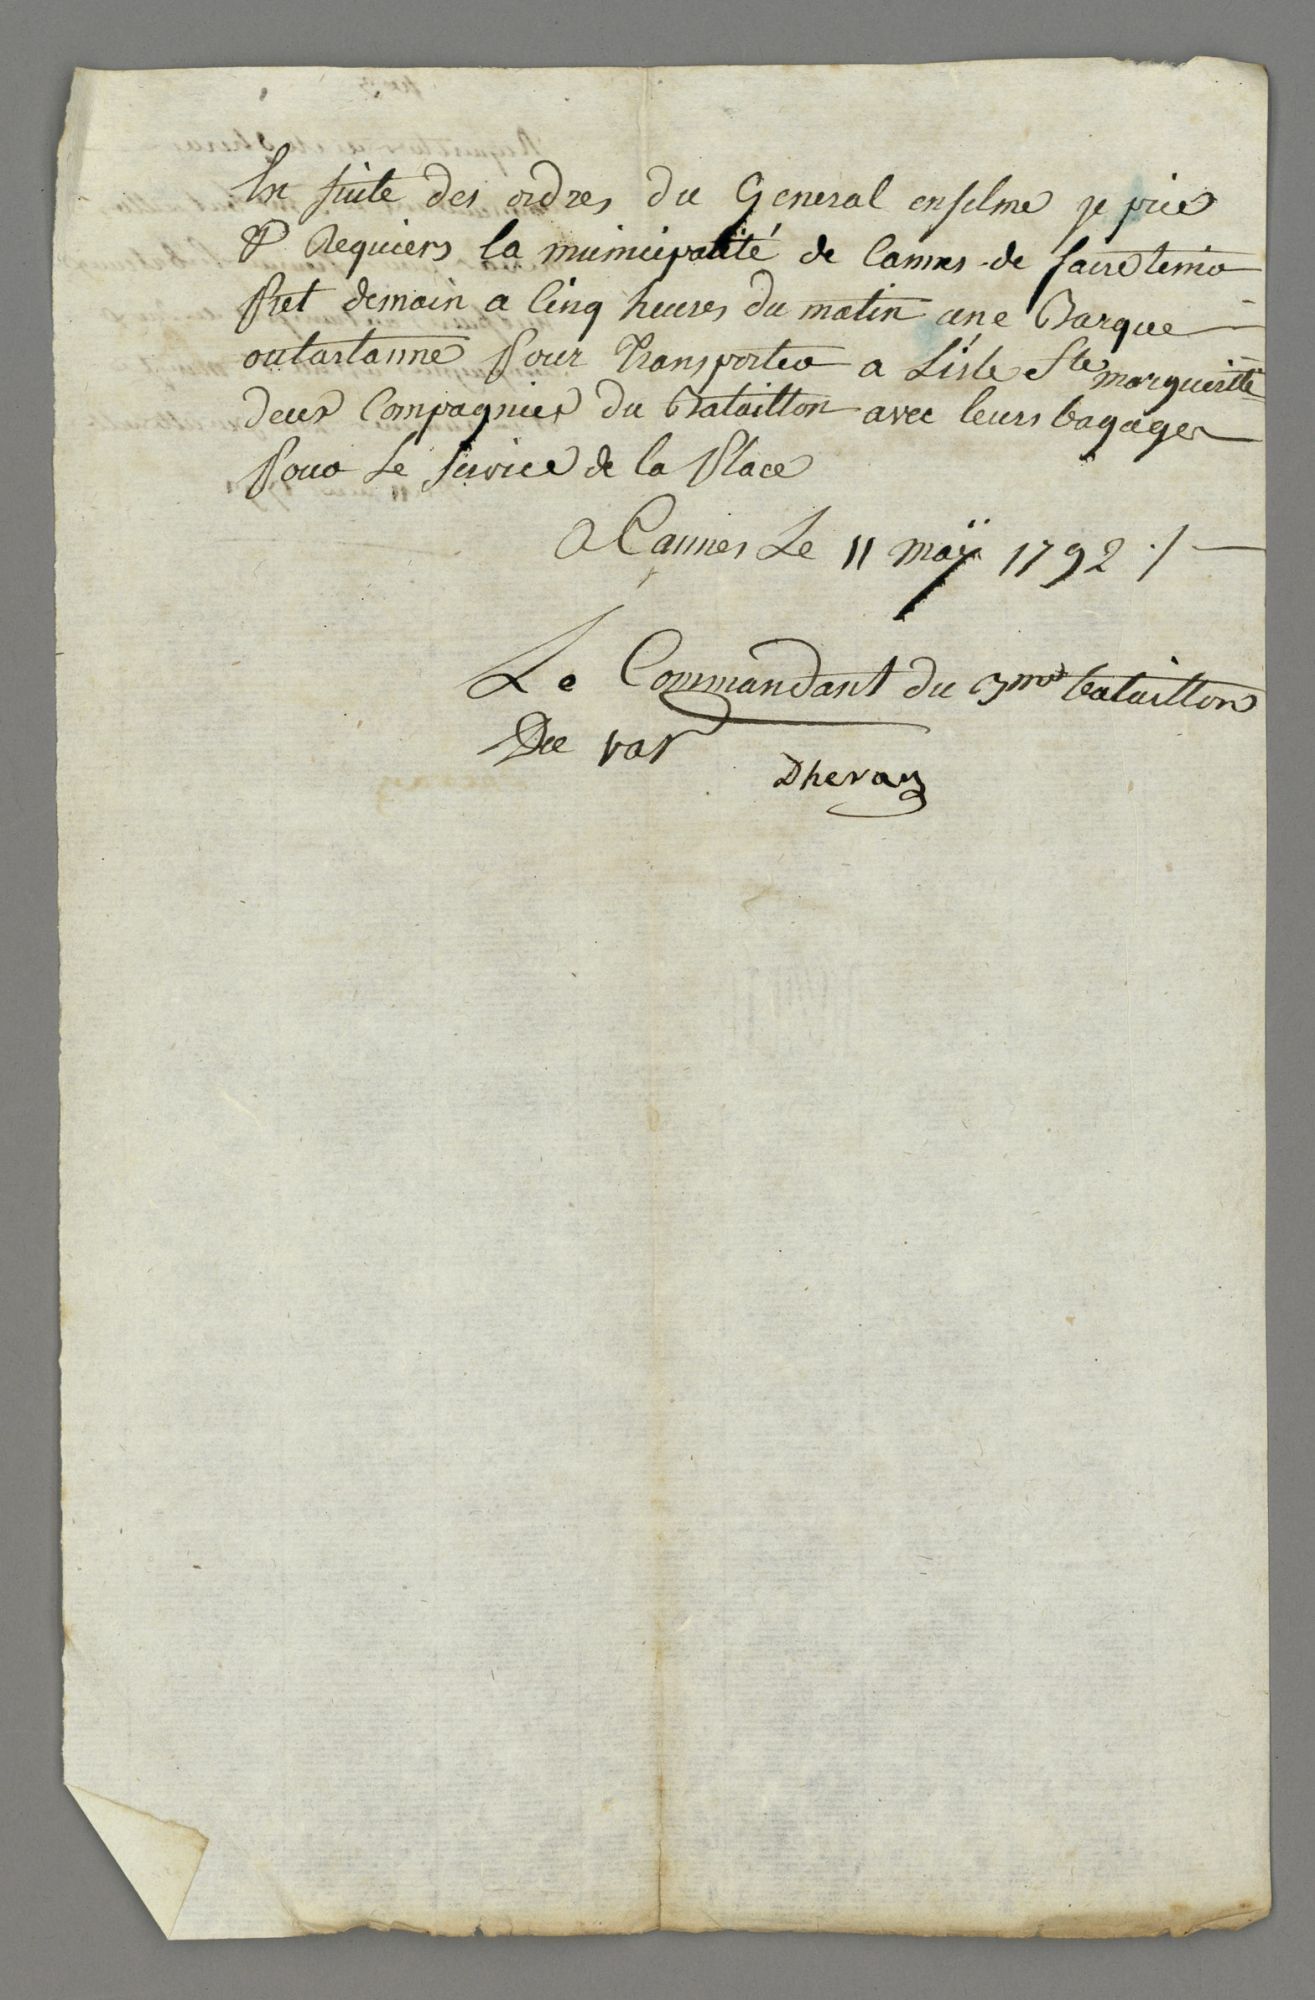 En suite des ordres du General enselme je prie
& Requiers la municipalité de Cannes de faire tenir
Pret demain a Cinq heures du matin une Barque
outartanne pour Transporter a L'isle Ste marguerite
deux Compagnies du Bataillon avec leurs bagages
Pour Le service de la Place
A Cannes Le 11 maÿ 1792 ./.
Le Commandant du 3me bataillon
Du var
Dheran